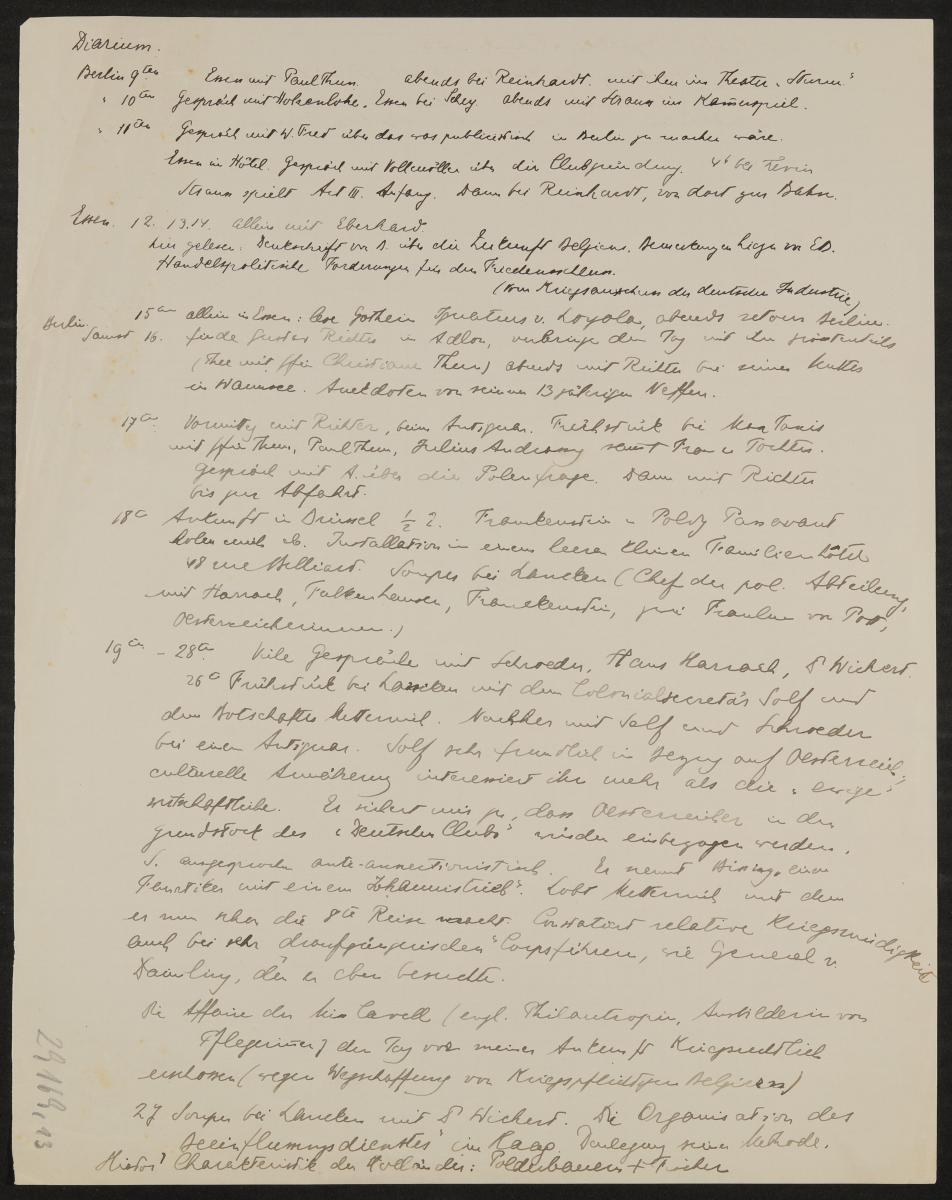 Diarium.
Berlin 9ten Essen mit Paul Thun. abends bei Reinhardt. mit ihm im Theater „Sturm“
" 10ten Gespräch mit Hohenlohe. Essen bei Schey abends mit Strauss im Kammerspiel.
" 11ten Gespräch mit W. Fred über das was publicistisch in Berlin zu machen wäre.
Essen im Hôtel. Gespräch mit Vollmöller über die Clubgründung. 4h bei
Strauss spielt Act III. Anfang. Dann bei Reinhardt, von dort zur Bahn.
Essen. 12. 13. 14. allein mit Eberhard.
hier gelesen: Denkschrift von B. über die Zukunft Belgiens. Bemerkungen hiezu von EB.
Handelspolitische Forderungen für den Friedensschluss.
(vom Kriegsausschuss der deutschen Industrie)
15ten allein in Essen: lese Gothein Ignatius v. Loyola, abends retour Berlin.
Berlin Samst 16. finde Gustav Richter im Adlon, verbringe den Tag mit ihm grösstenteils
(Thee mit Gfin Christiane Thun) abends mit Richter bei seiner Mutter
in Wannsee. Anekdoten von seinem 13 jährigen Neffen.
17ten Vormittag mit Richter, beim Antiquar. Frühstück bei
mit Gfin Thun, Paul Thun, Julius Andrassy samt Frau u Tochter.
Gespräch mit A. über die Polenfrage. Dann mit Richter
bis zur Abfahrt.
18ten Ankunft in Brüssel ½ 2. Franckenstein u Poldy Passavant
holen mich ab. Installation in einem leeren kleinen Familienhôtel
48 rue Belliard. Souper bei Lancken (Chef der pol. Abteilung,
mit Harrach, Falkenhausen, Franckenstein, zwei Fräulein von
Oesterreicherinnen.)
19ten – 28ten. Viele Gespräche mit Schroeder, Hans Harrach, Dr Wichert.
26ten Frühstück bei Lancken mit dem Colonialsecretär Solf und
dem Botschafter Metternich. Nachher mit Solf und Schroeder
bei einem Antiquar. Solf sehr freundlich in Bezug auf Oesterreich,
culturelle Annäherung interessiert ihn mehr als die „ewige“
wirtschaftliche. Er sichert mir zu, dass Oesterreicher in den
Grundstock des „Deutschen Clubs“ würden einbezogen werden.
S. ausgesprochen anti-annectionistisch. Er nennt Bissing einen
Fanatiker mit einem „Johannistrieb“. Lobt Metternich mit dem
er nun schon die 8te Reise macht. Constatiert relative Kriegsmüdigkeit
auch bei sehr draufgängerischen Corpsführern, wie General v.
Daimling, den er eben besuchte.
Die Affaire der Miss Cavell (engl. Philantropin, Ausbilderin von
Pflegerinnen) den Tag vor meiner Ankunft kriegsrechtlich
erschossen (wegen Wegschaffung von kriegspflichtigen Belgiern)
27 Souper bei Lancken mit Dr Wichert. Die Organisation des
„Beeinflussungsdienstes“ im Haag. Darlegung seiner Methode.
Charakteristik der Holländer: Polderbauern + Fischer